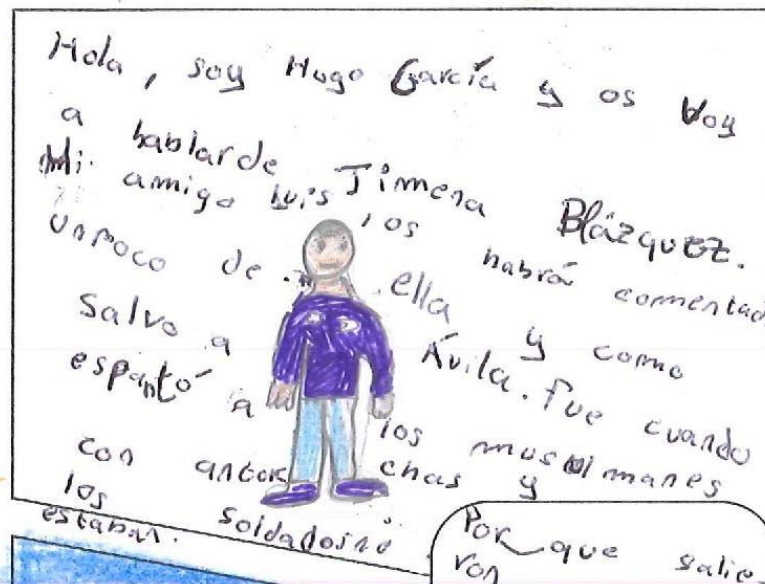 Hola, soy Hugo García y os voy
a hablarde Jimena Blázquez.
Mi amigo Luis los habrá comentado
unpoco de ella y como
salvo a Ávila. fue cuando
espantó a los muslimanes
con antor chas y
los soldadosno
estaban.
Por que salie
ron